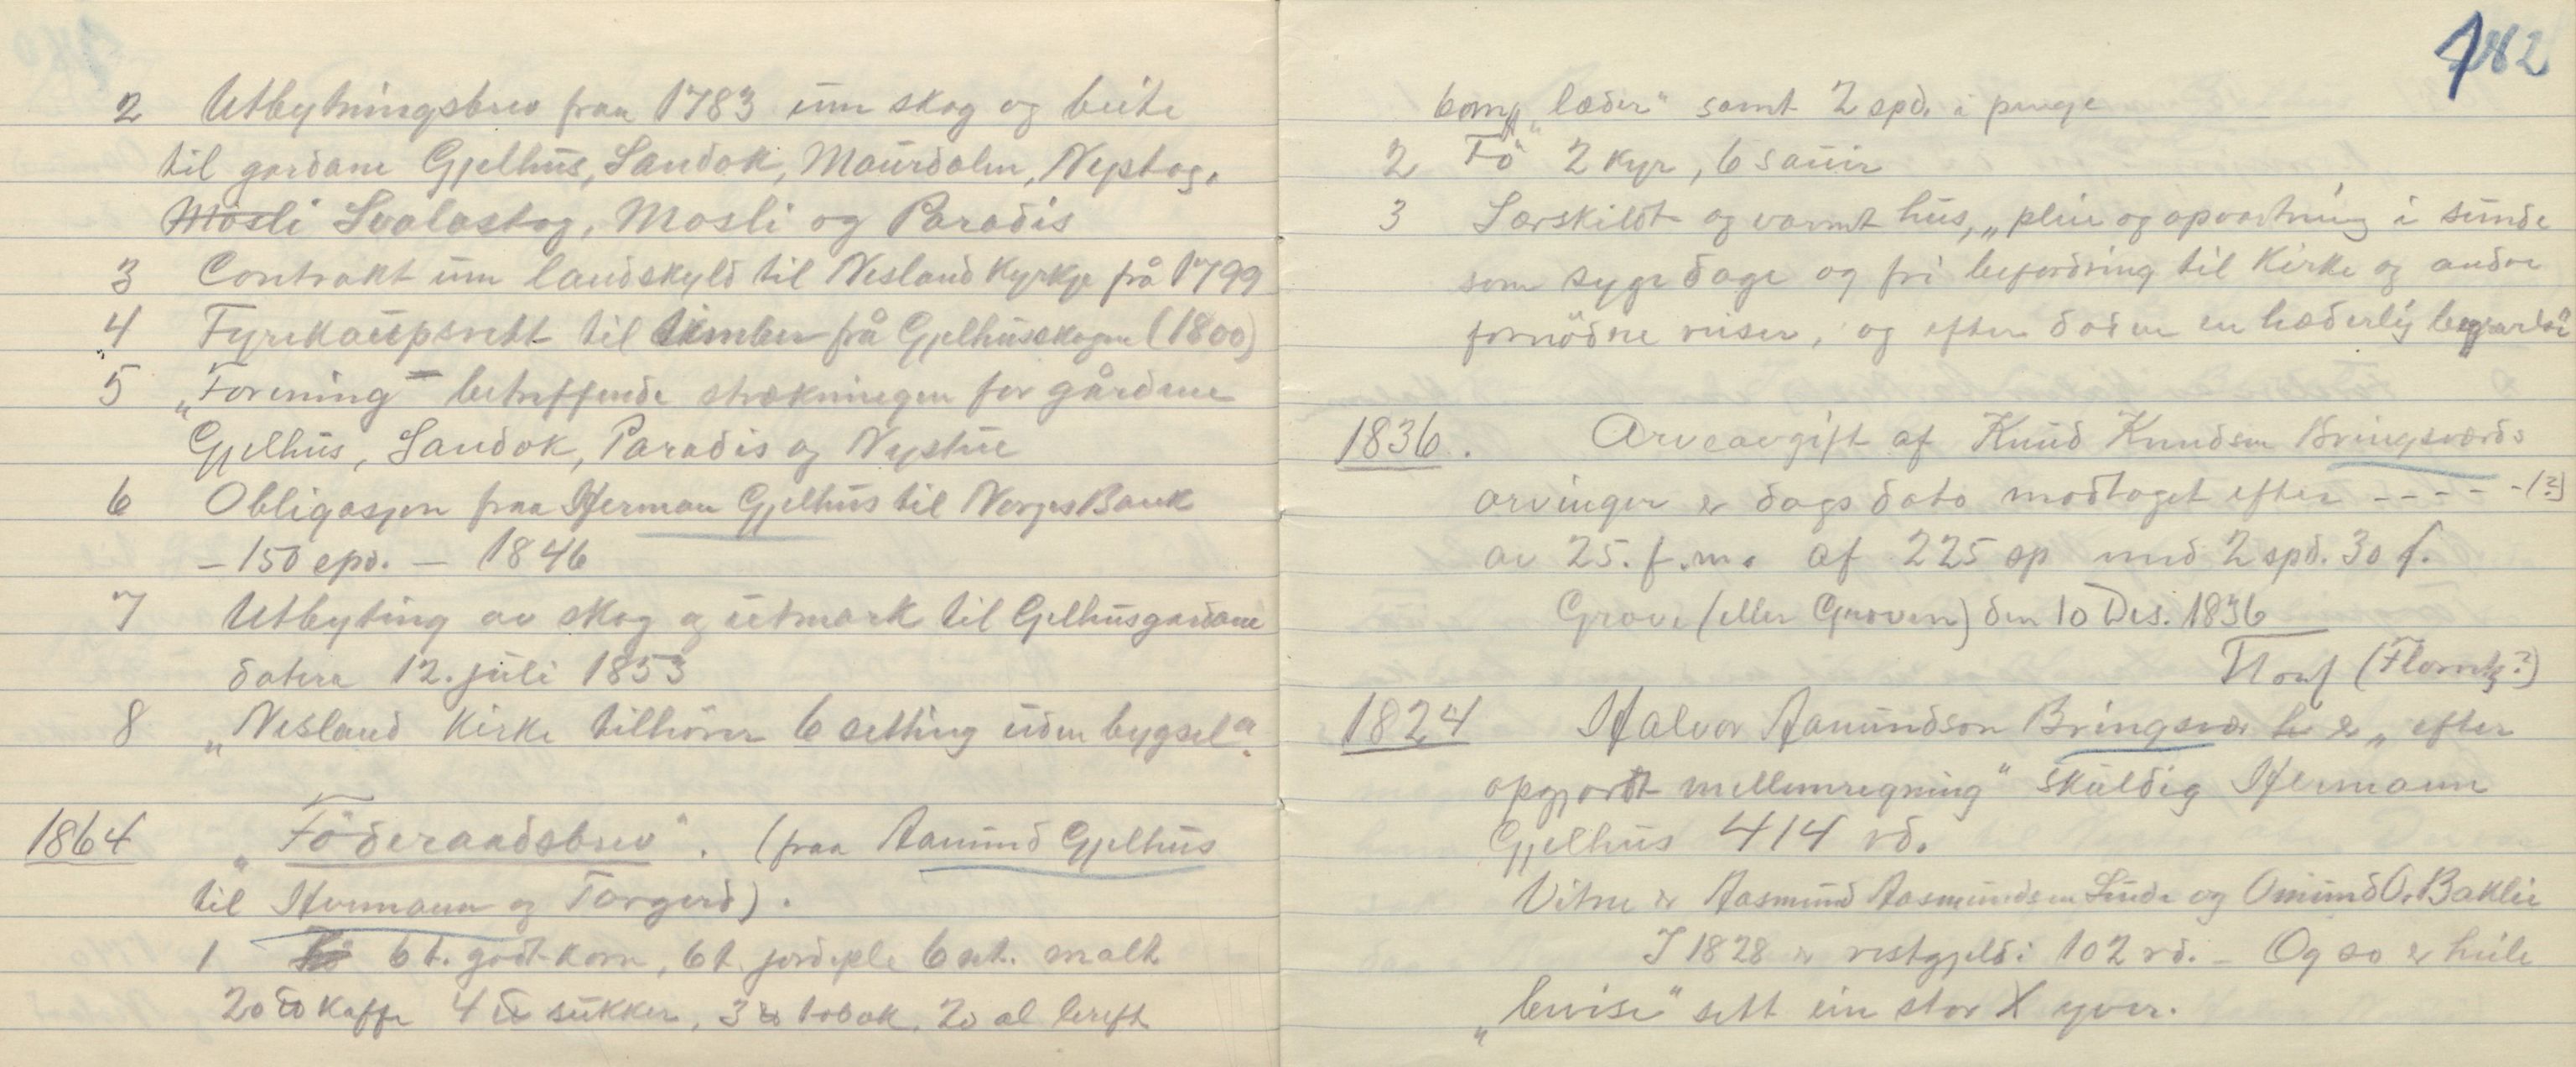 2 Utbytningsbrev fraa 1783 um skog og beite
til gardane Gjelhus, Sandok, Maurdalen, Nystog,
Mosli Svalastog, Mosli og Paradis
3 Contrakt um landskyld til Nesland Kyrkje frå 1799
4 Fyrekaupsrett til timber frå Gjelhusskogen (1800)
5 „Forening" betreffende strækningen for gårdene
Gjelhus, Sandok, Paradis og Nystue
6 Obligasjon fraa Herman Gjelhus til Norges Bank
– 150 spd. – 1846
7 Utbyting av skog og utmark til Gjelhusgardane
datera 12. juli 1853
8 „Nesland Kirke tilhører 6 setting uden bygsel".
1864 „Föderaadsbrev". (fraa Aamund Gjelhus
til Hermann og Torgerd).
1 6 t. godt korn, 6 t. jordeple 6 set. malt
20 ℔ kaffe 4 ℔ sukker, 3 ℔ tobak, 20 al lereft
182
6 „læder" samt 2 spd. i penge
2 Fö 2 kyr, 6 sauir
3 Særskildt og varmt hus, „pleie og opvartning i sunde
som syge dage og fri befordring til Kirke og andre
fornödne reiser, og efter döden en hæderlig begravelse"
1836. Arveavgift af Knud Knudsen Bringsværds
arvinger er dags dato modtaget efter - - - - - (?)
av 25. f.m. af 225 sp med 2 spd. 30 f.
Grove (eller Groven) den 10 Des. 1836
(Florentz?)
1824 Halvor Aamundson Bringsvær h er „efter
opgjordt mellemregning" skuldig Hermann
Gjelhus 414 rd.
Vitne er Aasmund Aasmundsen Lude og Omund O. Baklie
I 1828 er restgjeld: 102 rd. – Og so er heile
„bevise" sett ein stor X yver.